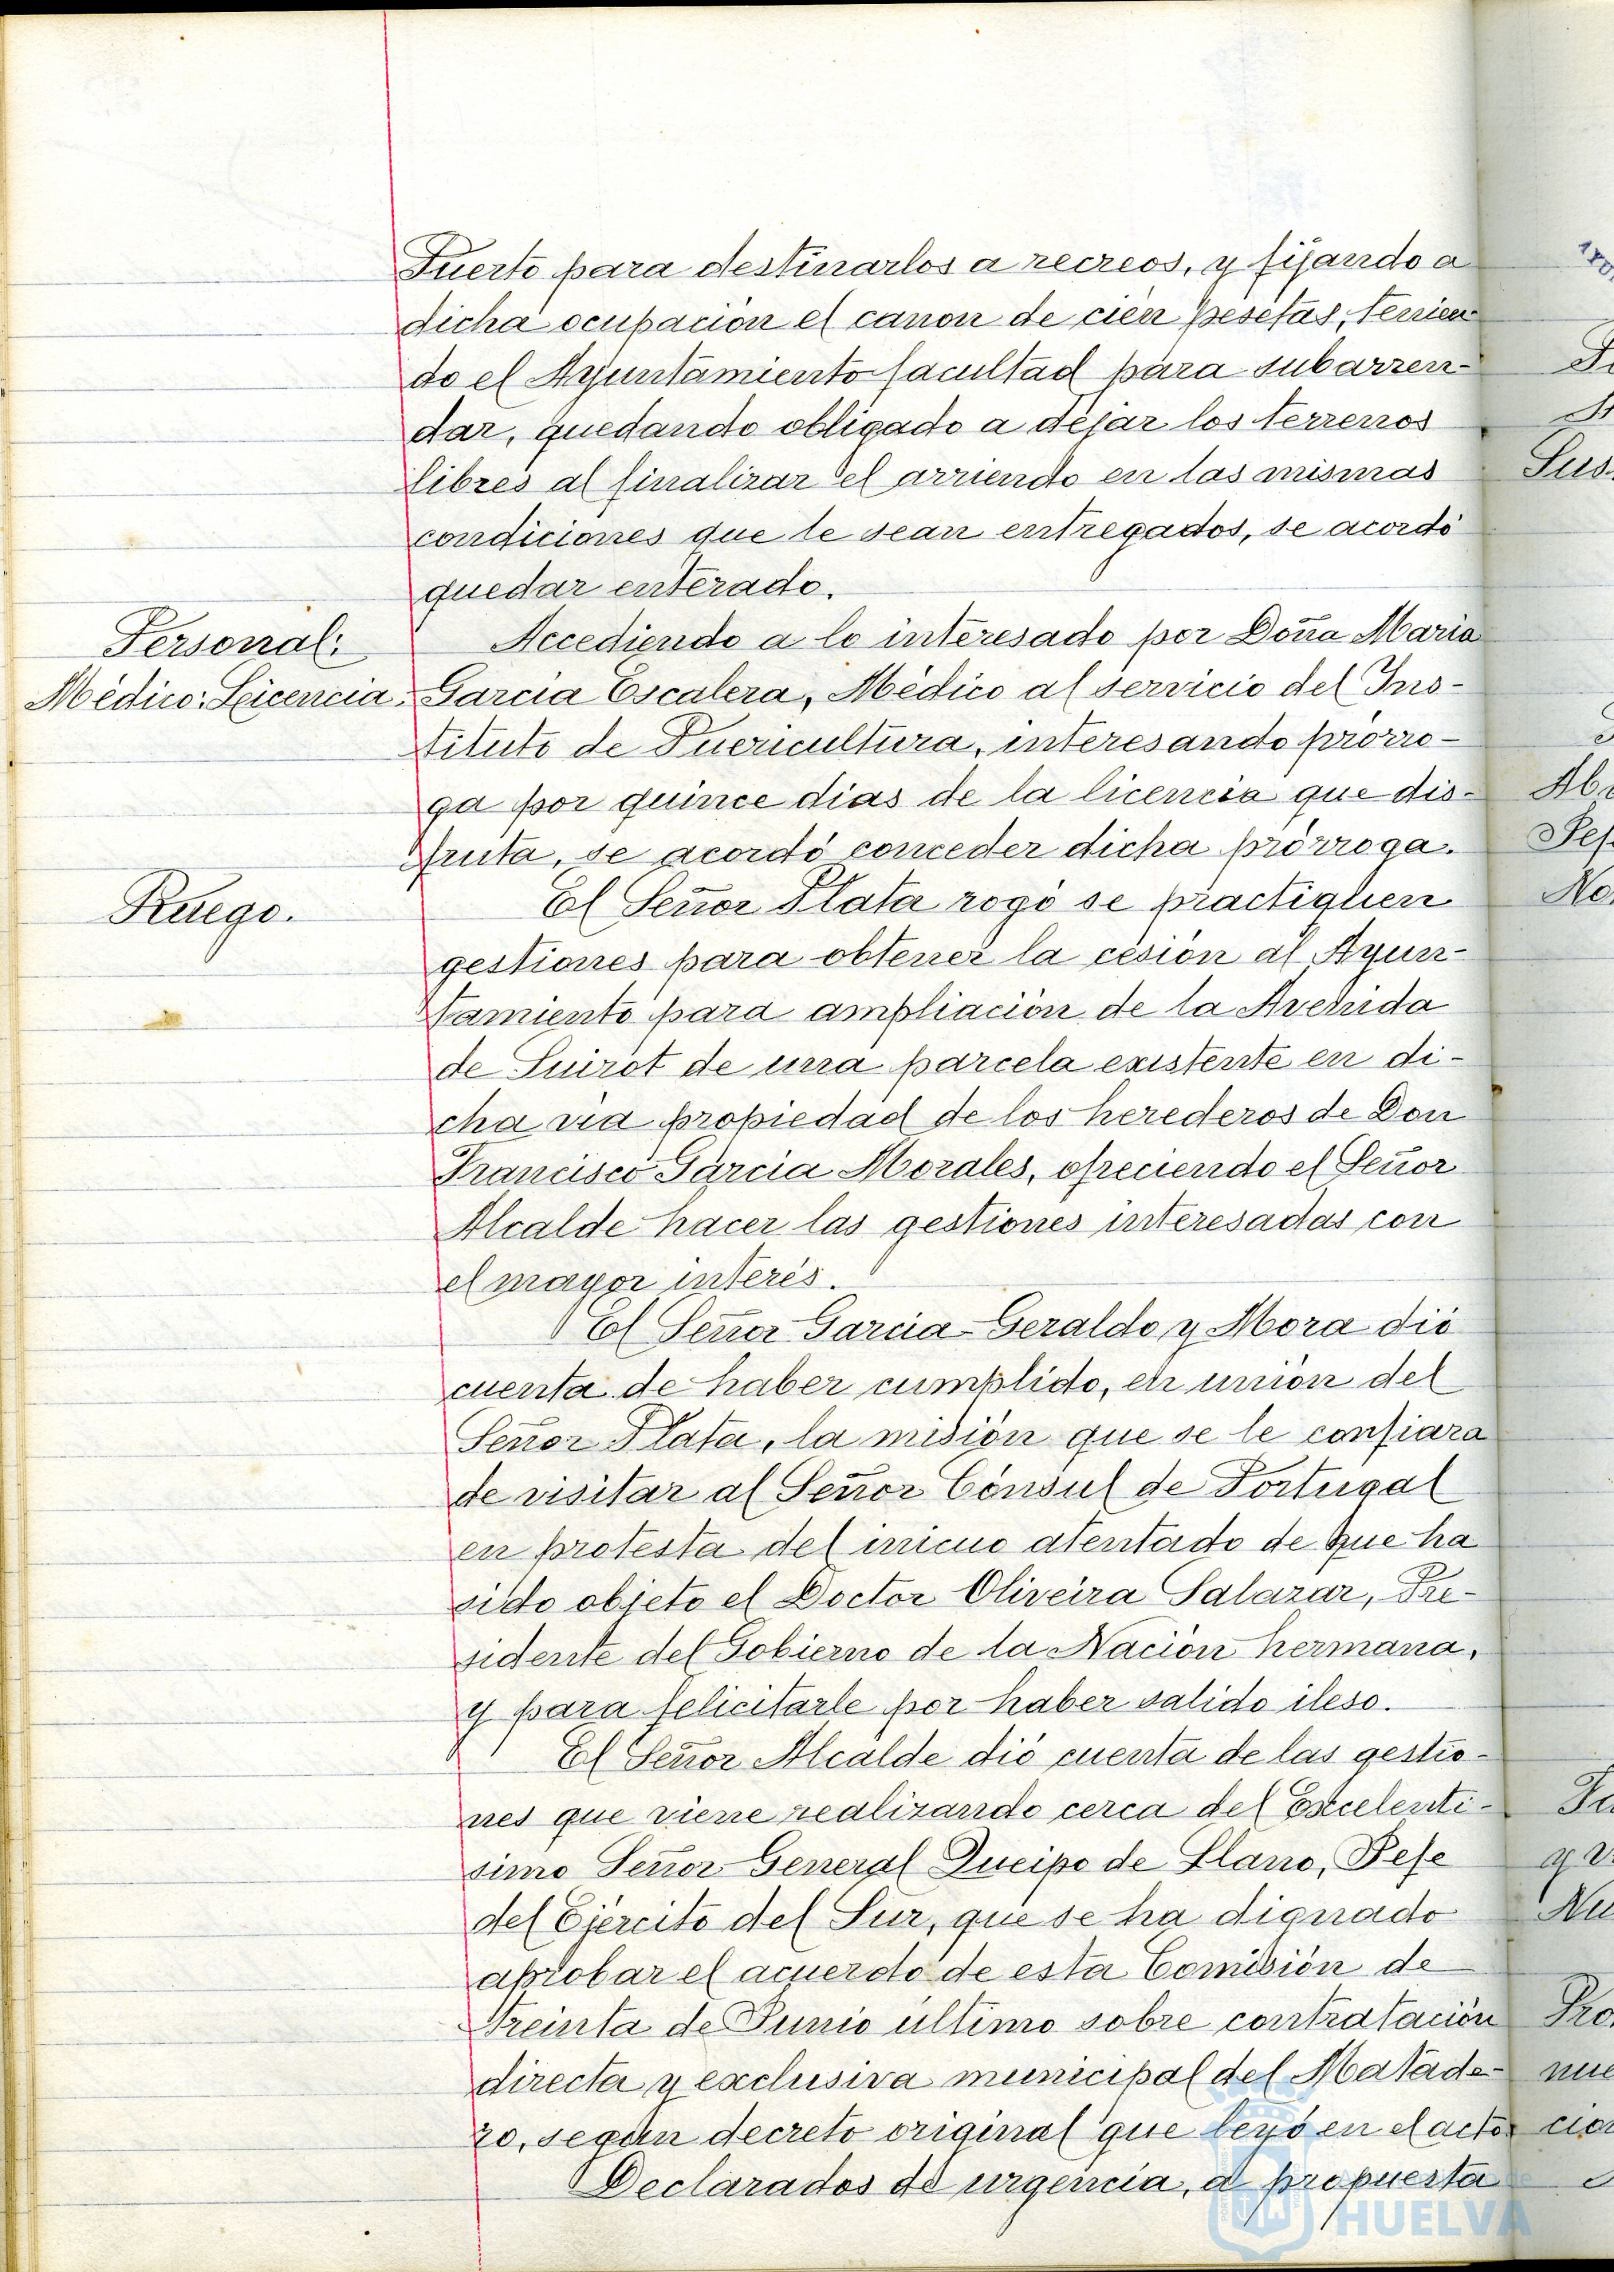 Puerto para destinarlos a recreos, y fijando a
dicha ocupación el canon de cien pesetas, tenien
do el Ayuntamiento facultad para subarren-
dar, quedando obligado a dejar los terrenos
libres al finalizar el arriendo en las mismas
condiciones que le sean entregados, se acordó
quedar enterado.
Personal:
Médico: Licencia.
Accediendo a lo interesado por Doña Maria
Garcia Escalera, Médico al servicio del Ins-
tituto de Puericultura, interesando prórro-
ga por quince dias de la licencia que dis-
fruta, se acordó conceder dicha prórroga.
Ruego.
El Señor Plata rogó se practiquen
gestiones para obtener la cesión al Ayun-
tamiento para ampliación de la Avenida
de Guirot de una parcela existente en di-
cha via propiedad de los herederos de Don
Francisco Garcia Morales, ofreciendo el Señor
Alcalde hacer las gestiones interesadas con
el mayor interés.
El Señor Garcia-Geraldo y Mora dió
cuenta de haber cumplido, en unión del
Señor Plata, la misión que se le confiara
de visitar al Señor Cónsul de Portugal
en protesta del inicuo atentado de que ha
sido objeto el Doctor Oliveira Salazar, Pre-
sidente del Gobierno de la Nación hermana,
y para felicitarle por haber salido ileso.
El Señor Alcalde dió cuenta de las gestio-
nes que viene realizando cerca del Excelenti-
simo Señor General Queipo de Llano, Jefe
del Ejército del Sur, que se ha dignado
aprobar el acuerdo de esta Comisión de
treinta de Junio último sobre contratación
directa y exclusiva municipal del Matade-
ro, según decreto original que leyó en el acto.
Declarados de urgencia, a propuesta
HUELVA